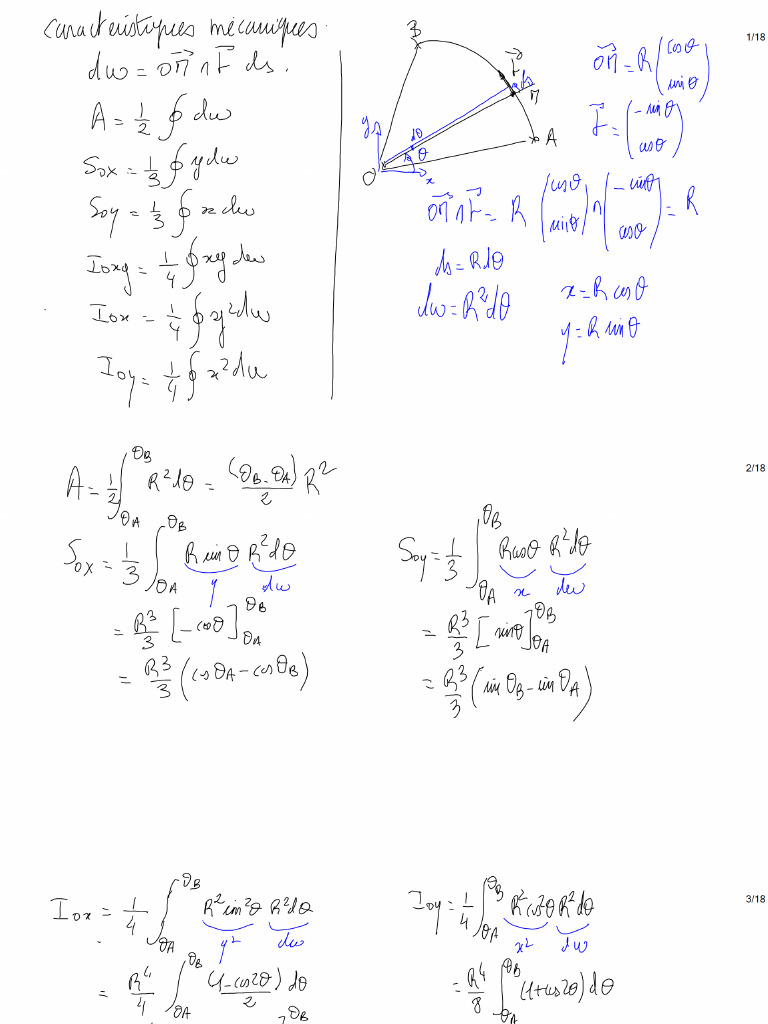 caractéristiques mécaniques.
dω = O⃗M ∧ t⃗ ds.
A = 1/2 ∮ dω
Sox = 1/3 ∮ y dω
Soy = 1/3 ∮ x dω
Ioxy = 1/4 ∮ xy dω
Iox = 1/4 ∮ y² dω
Ioy = 1/4 ∮ x² dω
B
t⃗
ds
M
A
y
dθ
θ
O
x
O⃗M = R (cosθ sinθ)
t⃗ = (-sinθ cosθ)
O⃗M ∧ t⃗ = R (cosθ sinθ) ∧ (-sinθ cosθ) = R
ds = R dθ
dω = R² dθ
x = R cosθ
y = R sinθ
1/18
A = 1/2 ∫θA^θB R² dθ = (θB - θA)/2 R²
2/18
Sox = 1/3 ∫θA^θB R sinθ R² dθ
y dω
= R³/3 [-cosθ]θA^θB
= R³/3 (cosθA - cosθB)
Soy = 1/3 ∫θA^θB R cosθ R² dθ
x dω
= R³/3 [sinθ]θA^θB
= R³/3 (sinθB - sinθA)
Iox = 1/4 ∫θA^θB R² sin²θ R² dθ
y² dω
= R⁴/4 ∫θA^θB (1-cos2θ)/2 dθ
θB
Ioy = 1/4 ∫θA^θB R² cos²θ R² dθ
x² dω
= R⁴/8 ∫θA^θB (1+cos2θ) dθ
3/18